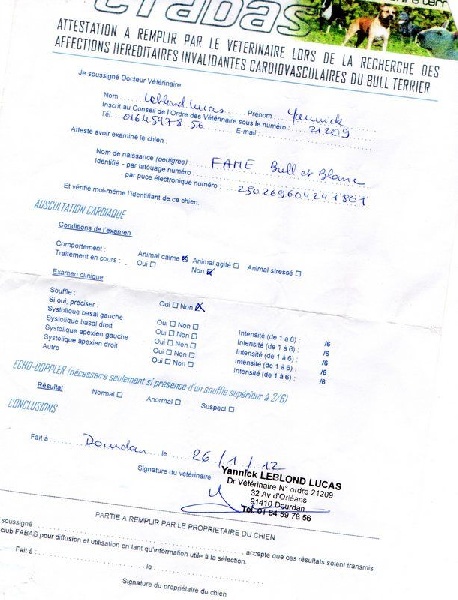 crabas
ATTESTATION A REMPLIR PAR LE VETERINAIRE LORS DE LA RECHERCHE DES
AFFECTIONS HEREDITAIRES INVALIDANTES CARDIOVASCULAIRES DU BULL TERRIER
Je soussigné Docteur Vétérinaire
Nom Leblond Lucas Prénom Yannick
Inscrit au Conseil de l'Ordre des Vétérinaire sous le numéro : 21209
Tél. E-mail :
Atteste avoir examiné le chien
Nom de naissance (pedigree) FAME Bull et Blanc
Identifié - par tatouage numéro :
- par puce électronique numéro :
Et vérifié moi-même l'identifiant de ce chien.
AUSCULTATION CARDIAQUE
Conditions de l'examen
Comportement : Animal calme ☒ Animal agité ☐ Animal stressé ☐
Traitement en cours : Oui ☐ Non ☒
Examen clinique
Souffle : Oui ☐ Non ☒
Si oui, préciser
Systolique basal gauche Oui ☐ Non ☐ Intensité (de 1 à 6) : /6
Systolique basal droit Oui ☐ Non ☐ Intensité (de 1 à 6) : /6
Systolique apexien gauche Oui ☐ Non ☐ Intensité (de 1 à 6) : /6
Systolique apexien droit Oui ☐ Non ☐ Intensité (de 1 à 6) : /6
Autre Oui ☐ Non ☐ Intensité (de 1 à 6) : /6
ECHO-DOPPLER (nécessaire seulement si présence d'un souffle supérieur à 2/6)
Résultat Normal ☐ Anormal ☐ Suspect ☐
CONCLUSIONS
Fait à Dourdan le 26/1/12
Signature du vétérinaire
Yannick LEBLOND LUCAS
Dr Vétérinaire N° ordre 21209
32 Av d'Orléans
91410 Dourdan
Tel. 01 64 59 78 56
PARTIE A REMPLIR PAR LE PROPRIETAIRE DU CHIEN
soussigné , accepte que ces résultats soient transmis
club pour diffusion et utilisation en tant qu'information utile à la sélection.
Fait à : le
Signature du propriétaire du chien